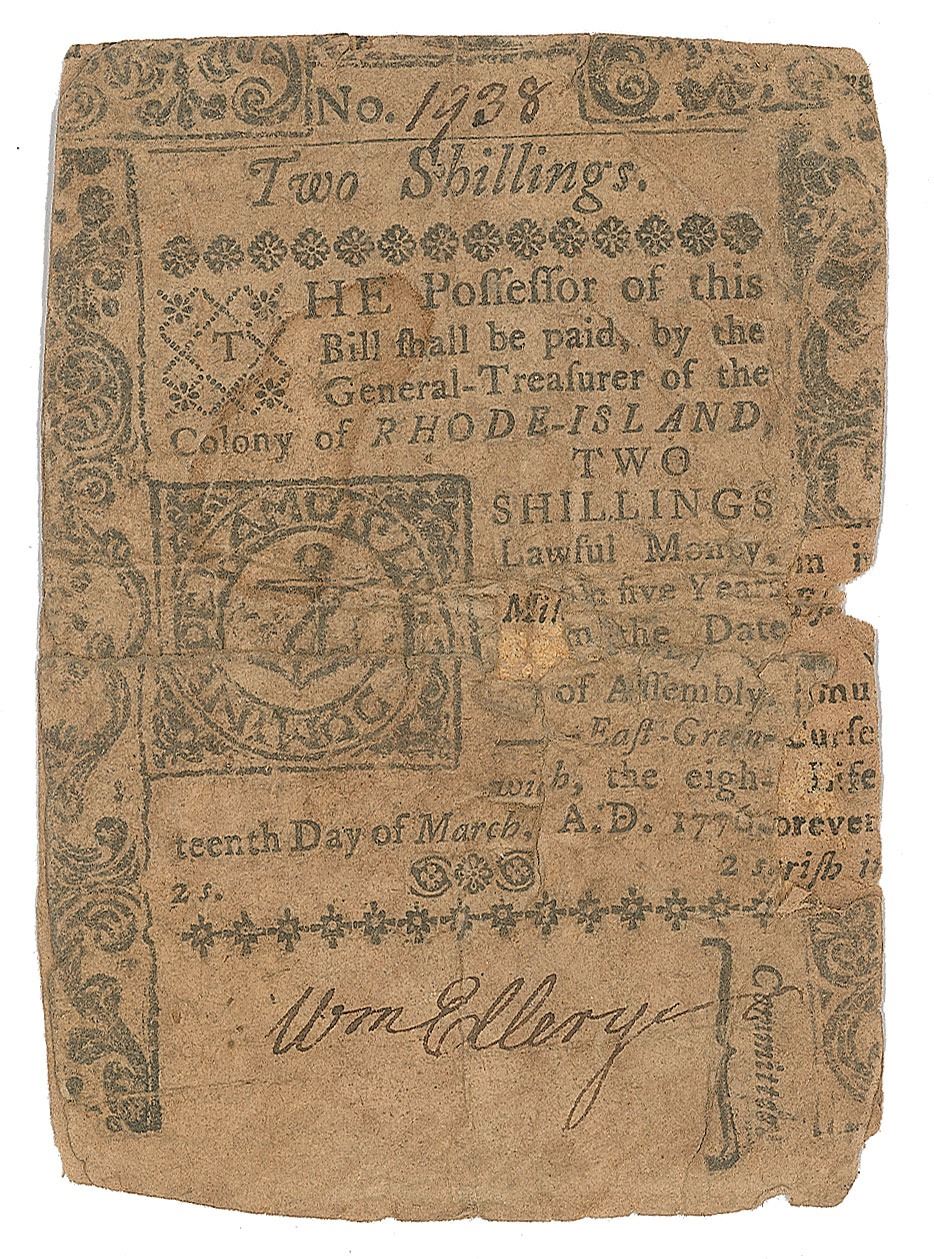 No. 1938
Two Shillings.
THE Poſſeſſor of this
Bill ſhall be paid, by the
General-Treaſurer of the
Colony of RHODE-ISLAND,
TWO
SHILLINGS
Lawful Money,
in five Years
Mil
the Date
of Aſſembly.
mu
Eaſt-Green-
Curſe
wi h, the eigh-
Life
teenth Day of March. A.D. 1776.
orever
2 s.
2 s.
riſh i
Wm Ellery
Committee.